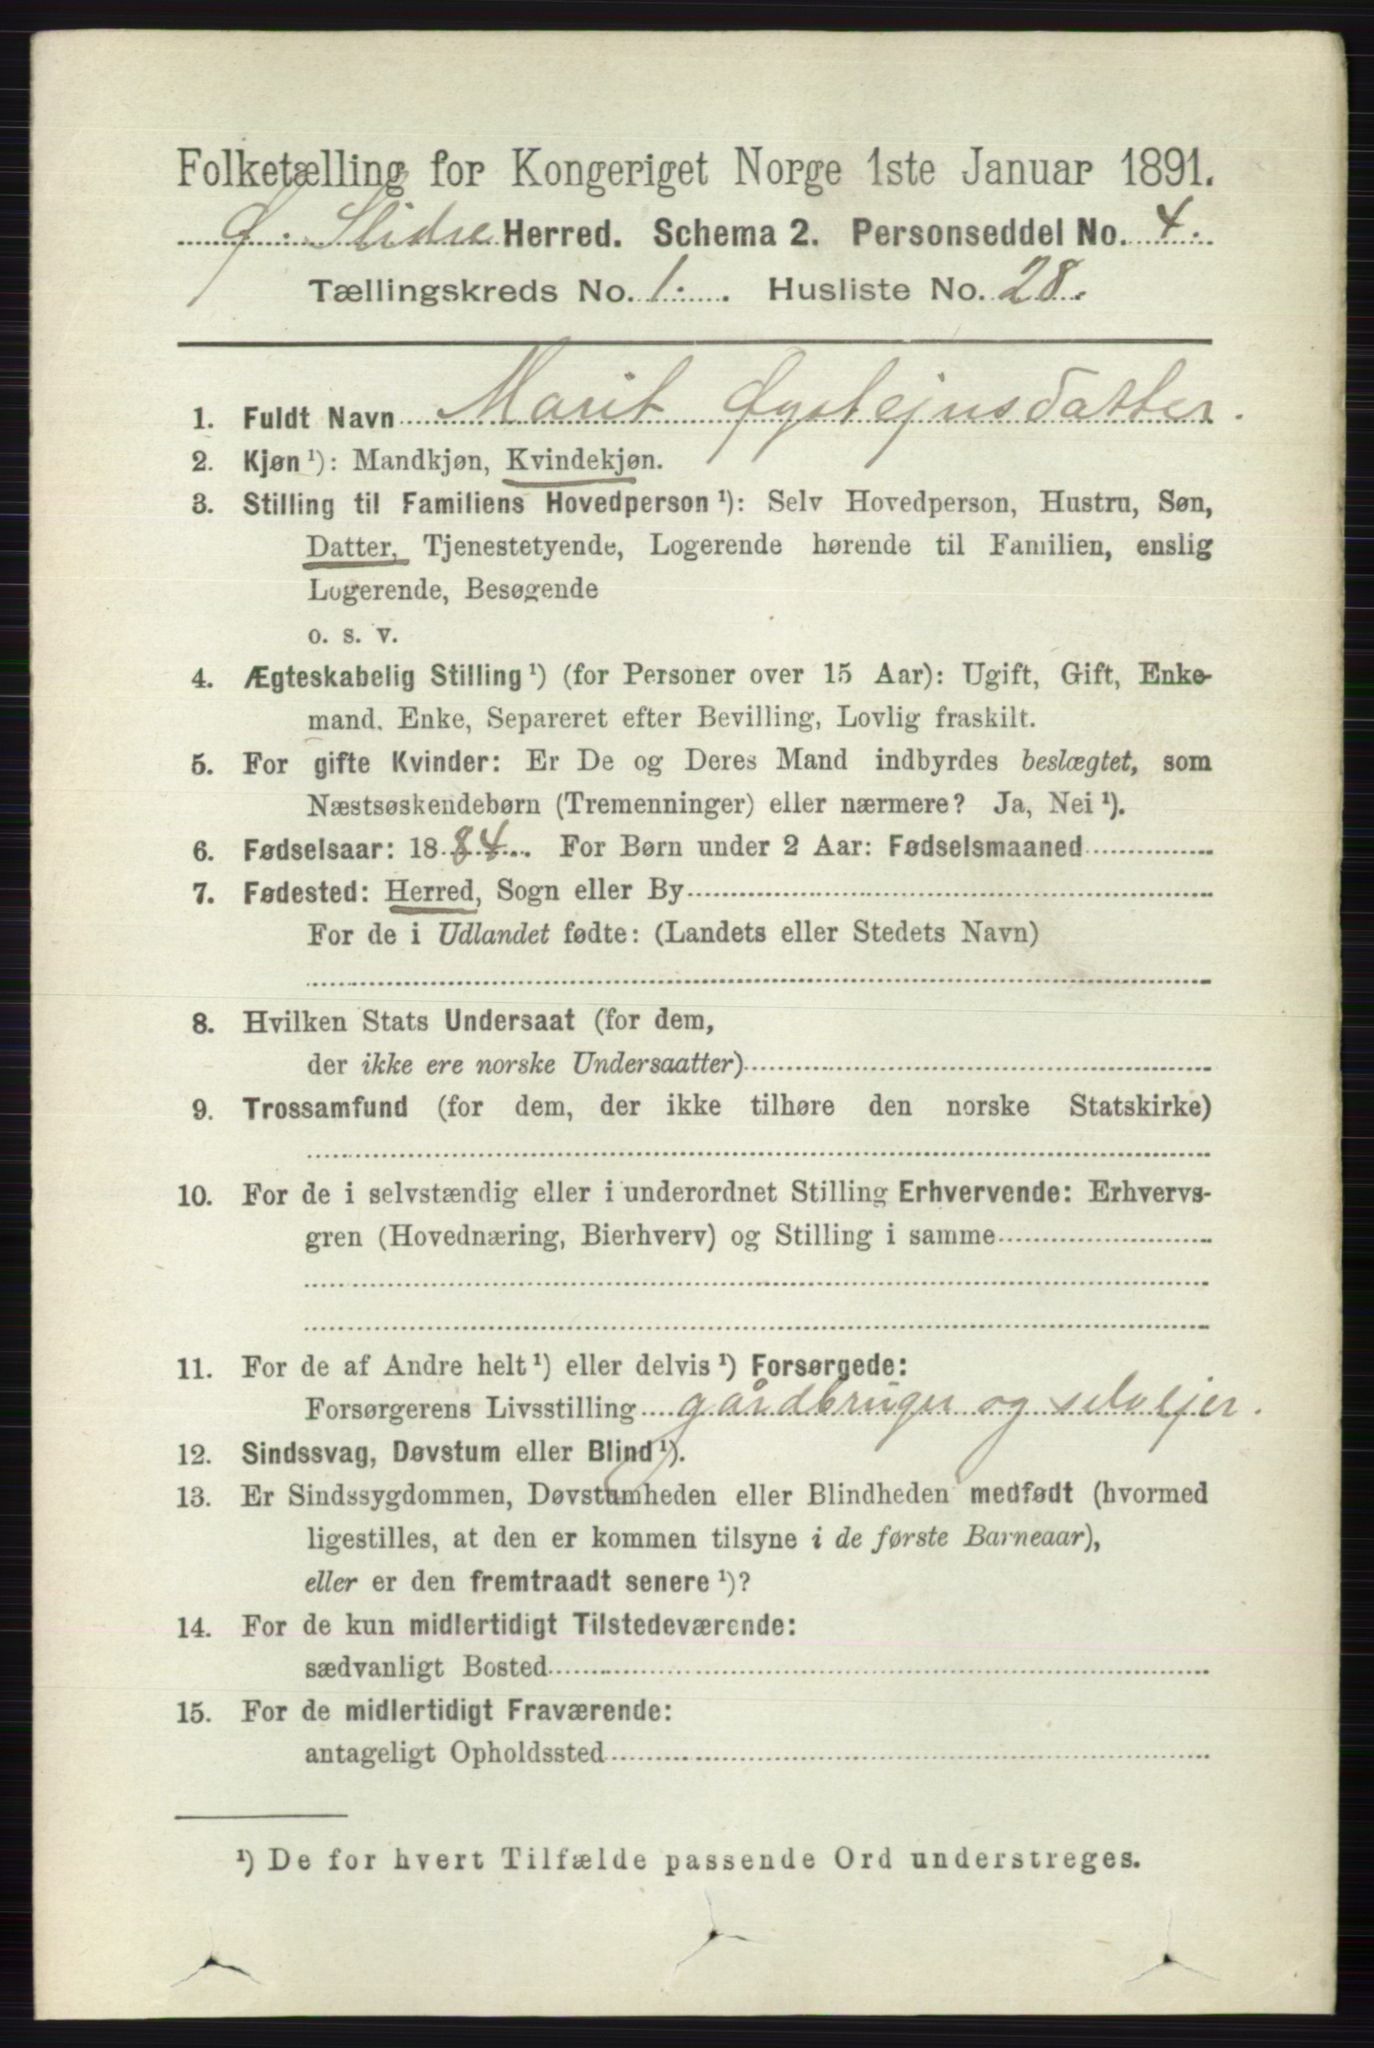 Folketælling for Kongeriget Norge 1ste Januar 1891.
Ø. Slidre Herred. Schema 2. Personseddel No. 4.
Tællingskreds No. 1. Husliste No. 28.
1. Fuldt Navn Marit Øystejnsdatter.
2. Kjøn ¹): Mandkjøn, Kvindekjøn.
3. Stilling til Familiens Hovedperson ¹): Selv Hovedperson, Hustru, Søn,
Datter, Tjenestetyende, Logerende hørende til Familien, enslig
Logerende, Besøgende
o. s. v.
4. Ægteskabelig Stilling ¹) (for Personer over 15 Aar): Ugift, Gift, Enke-
mand, Enke, Separeret efter Bevilling, Lovlig fraskilt.
5. For gifte Kvinder: Er De og Deres Mand indbyrdes beslægtet, som
Næstsøskendebørn (Tremenninger) eller nærmere? Ja, Nei ¹).
6. Fødselsaar: 1884. For Børn under 2 Aar: Fødselsmaaned
7. Fødested: Herred, Sogn eller By
For de i Udlandet fødte: (Landets eller Stedets Navn)
8. Hvilken Stats Undersaat (for dem,
der ikke ere norske Undersaatter)
9. Trossamfund (for dem, der ikke tilhøre den norske Statskirke)
10. For de i selvstændig eller i underordnet Stilling Erhvervende: Erhvervs-
gren (Hovednæring, Bierhverv) og Stilling i samme
11. For de af Andre helt ¹) eller delvis ¹) Forsørgede:
Forsørgerens Livsstilling gårdbruger og selvejer.
12. Sindssvag, Døvstum eller Blind ¹).
13. Er Sindssygdommen, Døvstumheden eller Blindheden medfødt (hvormed
ligestilles, at den er kommen tilsyne i de første Barneaar),
eller er den fremtraadt senere ¹)?
14. For de kun midlertidigt Tilstedeværende:
sædvanligt Bosted
15. For de midlertidigt Fraværende:
antageligt Opholdssted
¹) De for hvert Tilfælde passende Ord understreges.